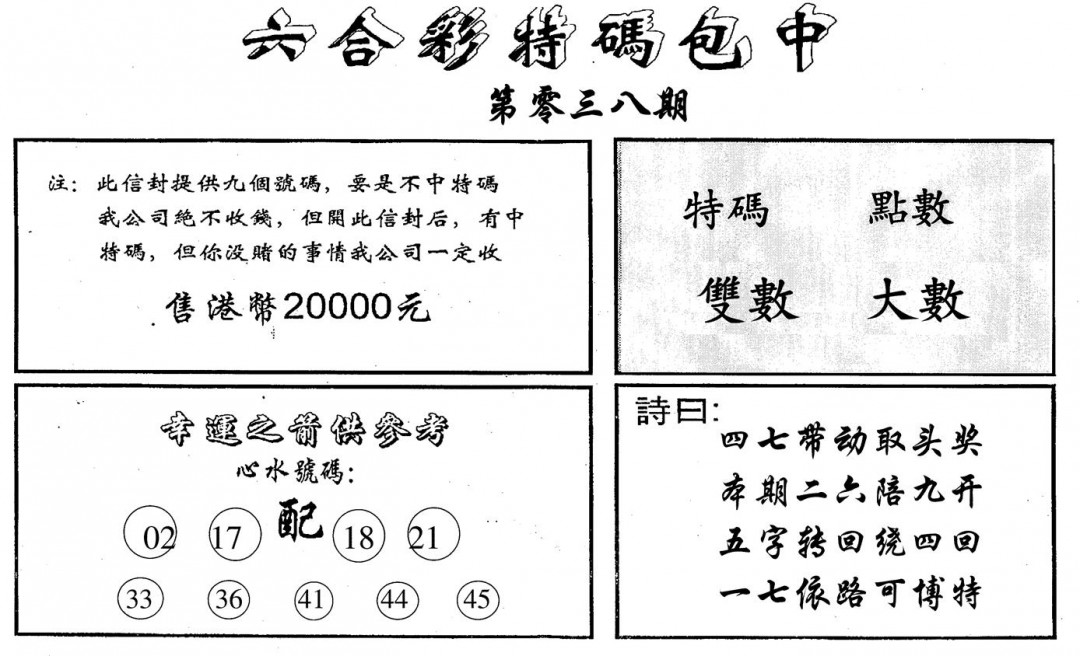 六合彩特碼包中
第零三八期
注：此信封提供九個號碼，要是不中特碼
我公司絕不收錢，但開此信封后，有中
特碼，但你没賭的事情我公司一定收
售港幣20000元
特碼 點數
雙數 大數
幸運之箭供參考
心水號碼：
配
02 17 18 21
33 36 41 44 45
詩曰：
四七带动取头奖
本期二六陪九开
五字转回绕四回
一七依路可博特